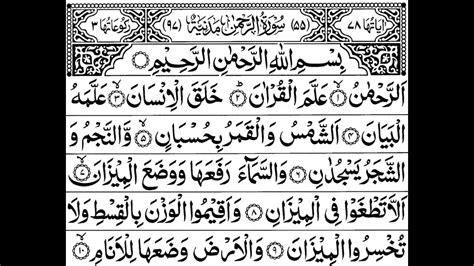 اٰیَاتُهَا ٧٨ (٥٥) سُوْرَةُ الرَّحْمٰنِ مَدَنِيَّةٌ (٩٧) رُكُوْعَاتُهَا ٣
بِسْمِ اللّٰهِ الرَّحْمٰنِ الرَّحِيْمِ
اَلرَّحْمٰنُ ۙ﴿١﴾ عَلَّمَ الْقُرْاٰنَ ؕ﴿٢﴾ خَلَقَ الْاِنْسَانَ ۙ﴿٣﴾ عَلَّمَهُ
الْبَيَانَ ﴿٤﴾ اَلشَّمْسُ وَالْقَمَرُ بِحُسْبَانٍ ۙ﴿٥﴾ وَّالنَّجْمُ وَ
الشَّجَرُ يَسْجُدٰنِ ﴿٦﴾ وَالسَّمَآءَ رَفَعَهَا وَوَضَعَ الْمِيْزَانَ ۙ﴿٧﴾
اَلَّا تَطْغَوْا فِى الْمِيْزَانِ ﴿٨﴾ وَاَقِيْمُوا الْوَزْنَ بِالْقِسْطِ وَلَا
تُخْسِرُوا الْمِيْزَانَ ﴿٩﴾ وَالْاَرْضَ وَضَعَهَا لِلْاَنَامِ ۙ﴿١٠﴾